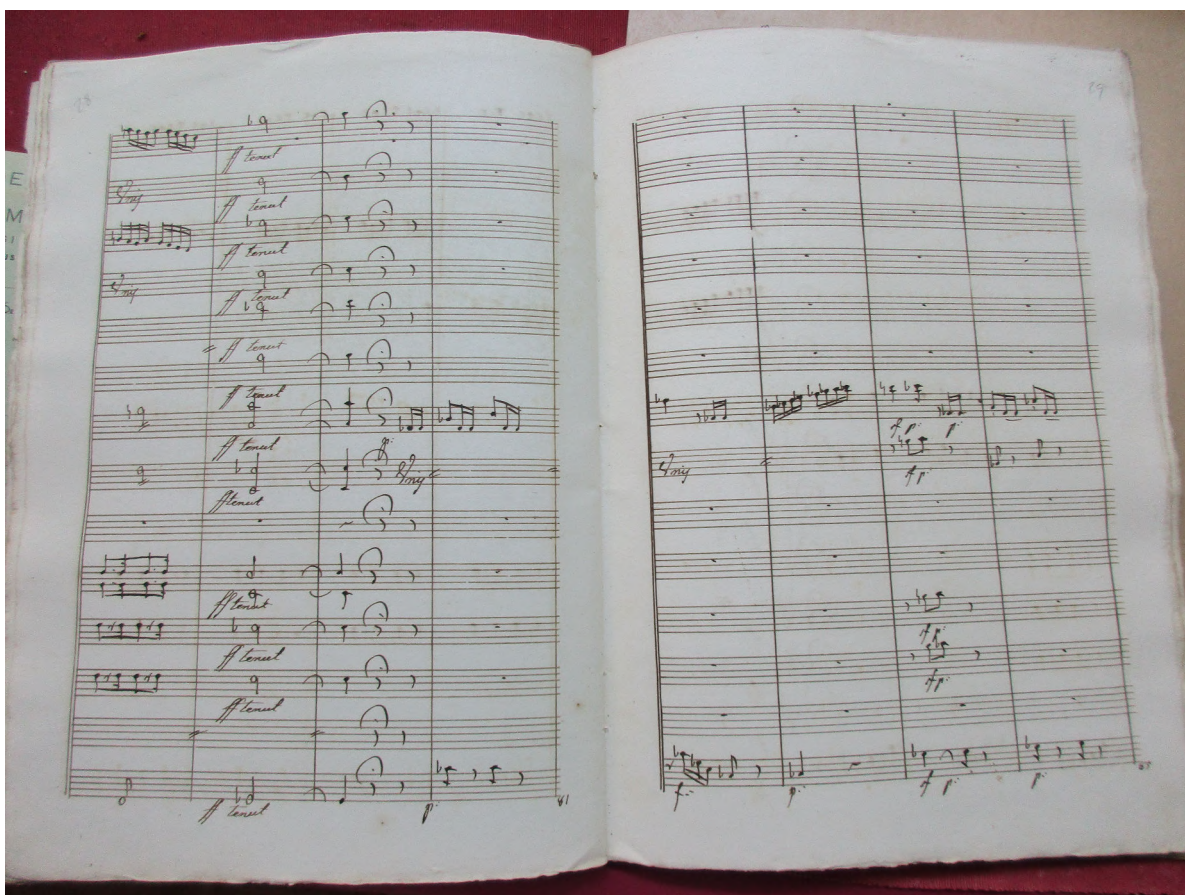 28
ff tenut
Vnij
ff tenut
ff tenut
Vnij
ff tenut
ff tenut
ff tenut
ff tenut
p:
Vnij
ff tenut
ff tenut
ff tenut
ff tenut
ff tenut
p:
61
29
f p: p:
Vnij
f p:
f p:
f p:
f:
p:
f p:
p:
65
E
M